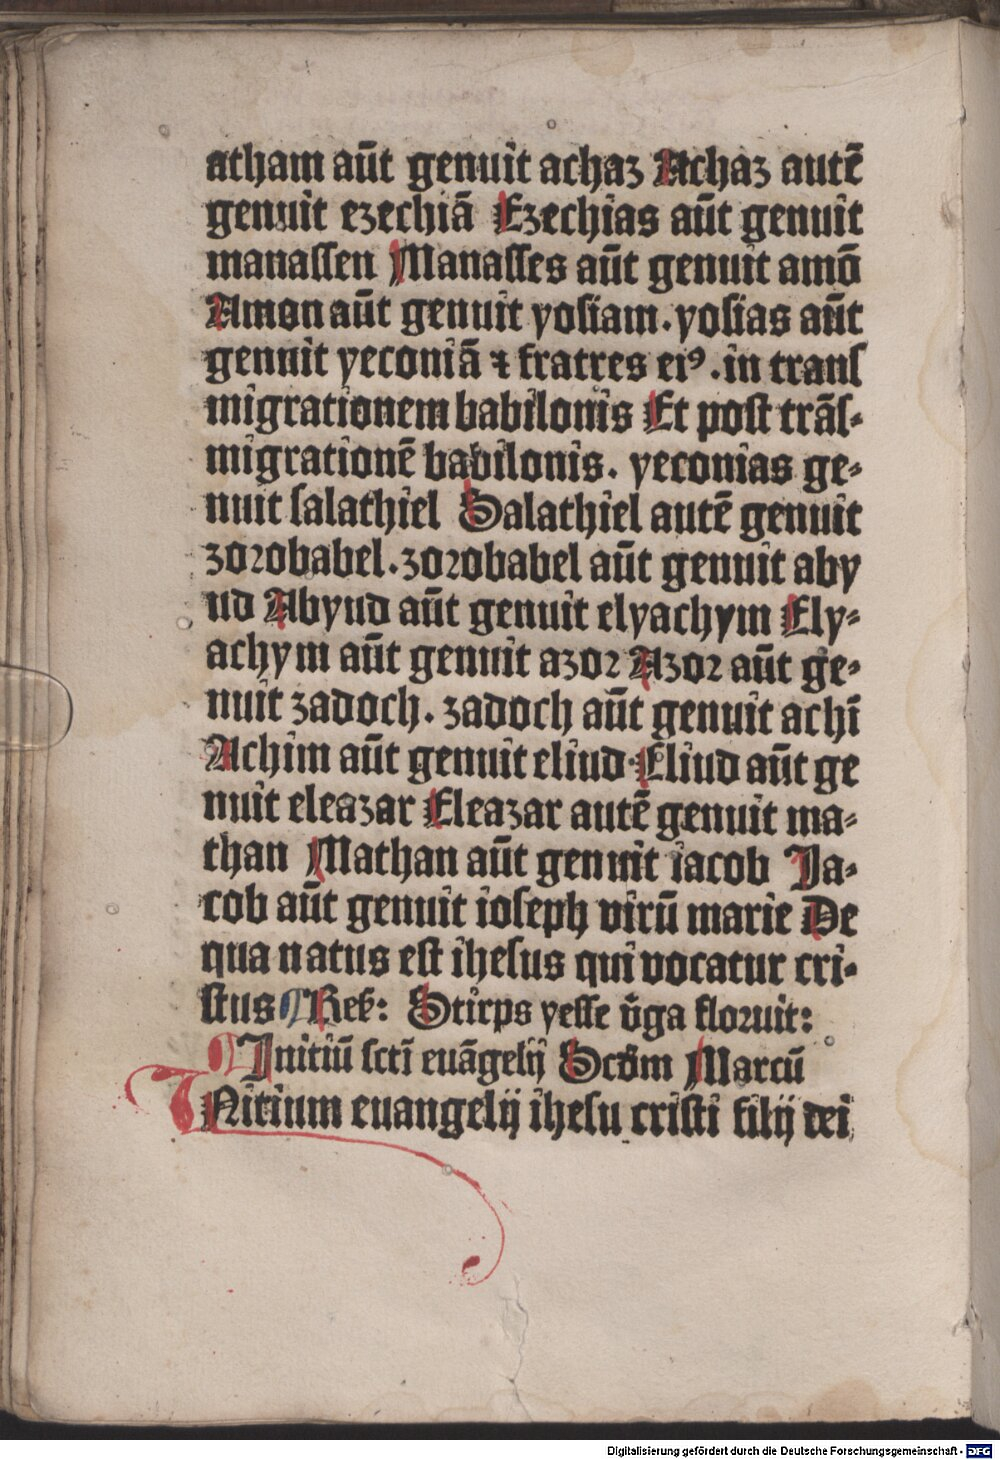 atham aūt genuit achaz Achaz autē
genuit ezechiā Ezechias aūt genuit
manaſſen Manaſſes aūt genuit amō
Amon aūt genuit yoſiam. yoſias aūt
genuit yeconiā ⁊ fratres eiꝰ. in tranſ
migrationem babilonis Et poſt trāſ⸗
migrationē babilonis. yeconias ge⸗
nuit ſalathiel Salathiel autē genuit
zoꝛobabel. zoꝛobabel aūt genuit aby
ud Abyud aūt genuit elyachym Ely⸗
achym aūt genuit azoꝛ Azoꝛ aūt ge⸗
nuit zadoch. zadoch aūt genuit achī
Achim aūt genuit eliud. Eliud aūt ge
nuit eleazar Eleazar autē genuit ma⸗
than Mathan aūt genuit iacob Ja⸗
cob aūt genuit ioſeph virū marie De
qua natus eſt iheſus qui vocatur cri⸗
ſtus ¶ Reꝭ: Stirps yeſſe v̄ga floꝛuit:
¶ Initiū ſctī euāgelij Scd̄m Marcū
INitium euangelij iheſu criſti filij dei
Digitalisierung gefördert durch die Deutsche Forschungsgemeinschaft - DFG